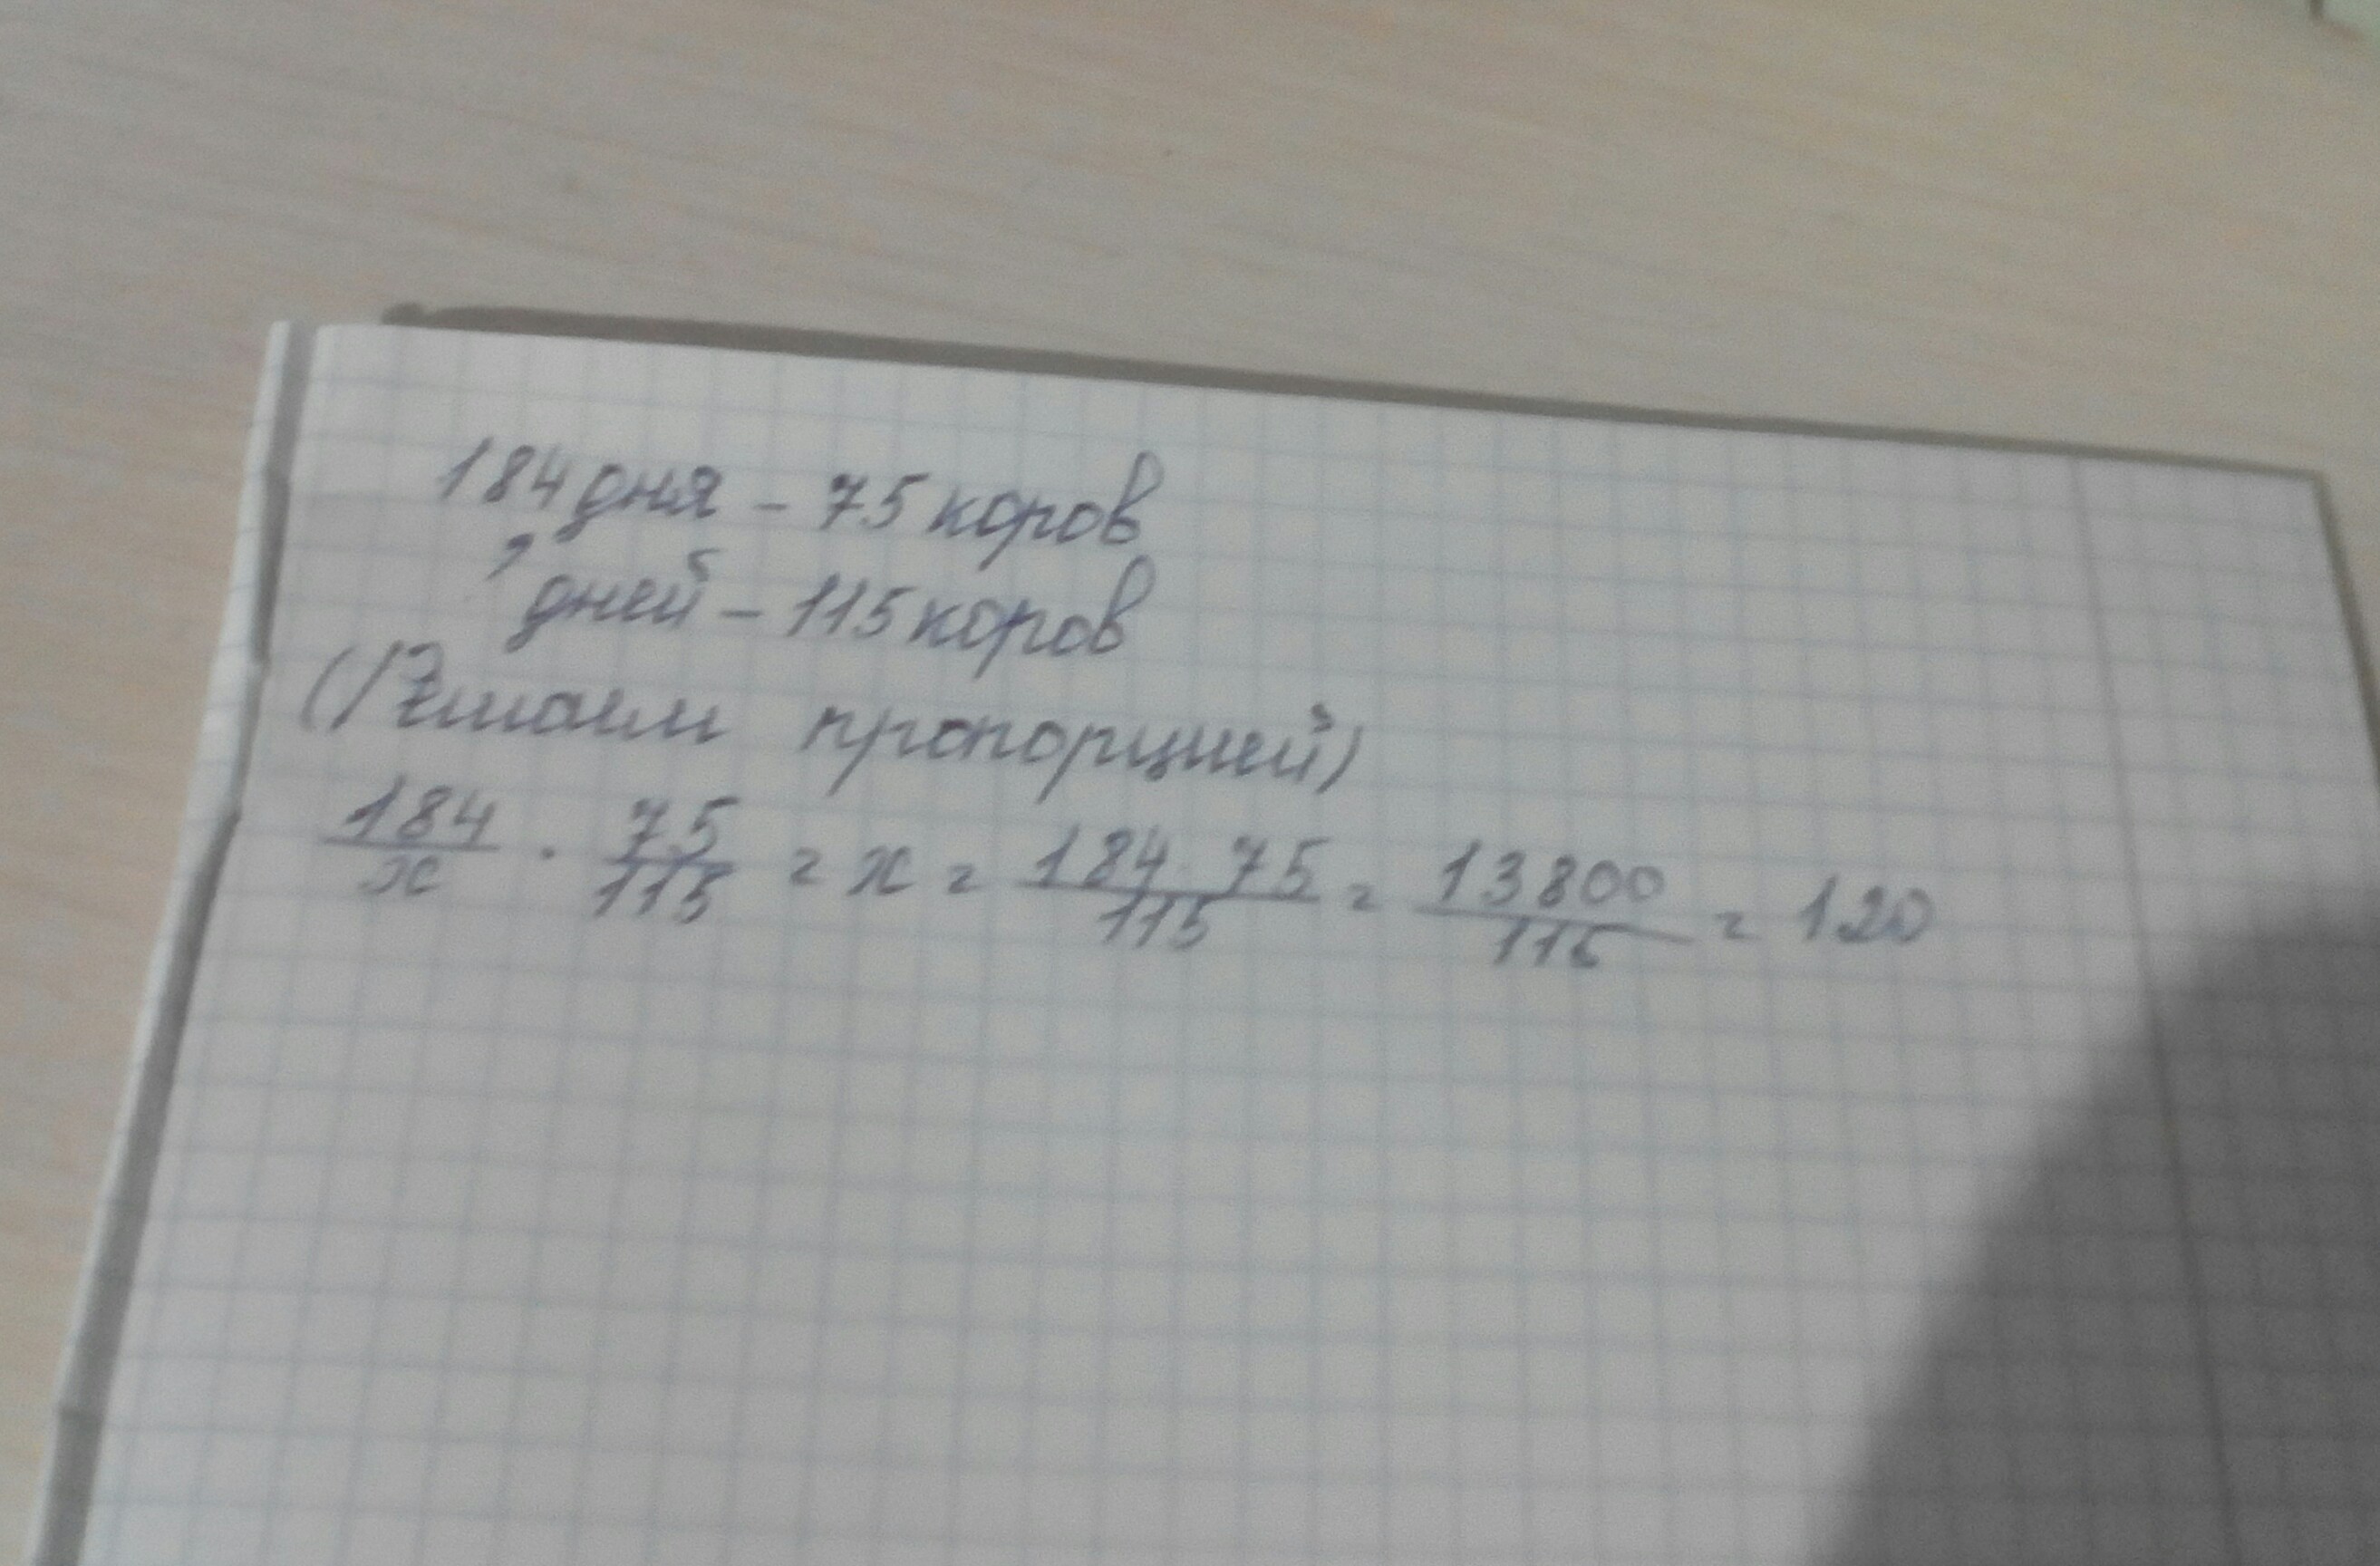 184 дня - 75 коров
? дней - 115 коров
(Решаем пропорцией)
184/x · 75/115 = x = 184·75/115 = 13800/115 = 120